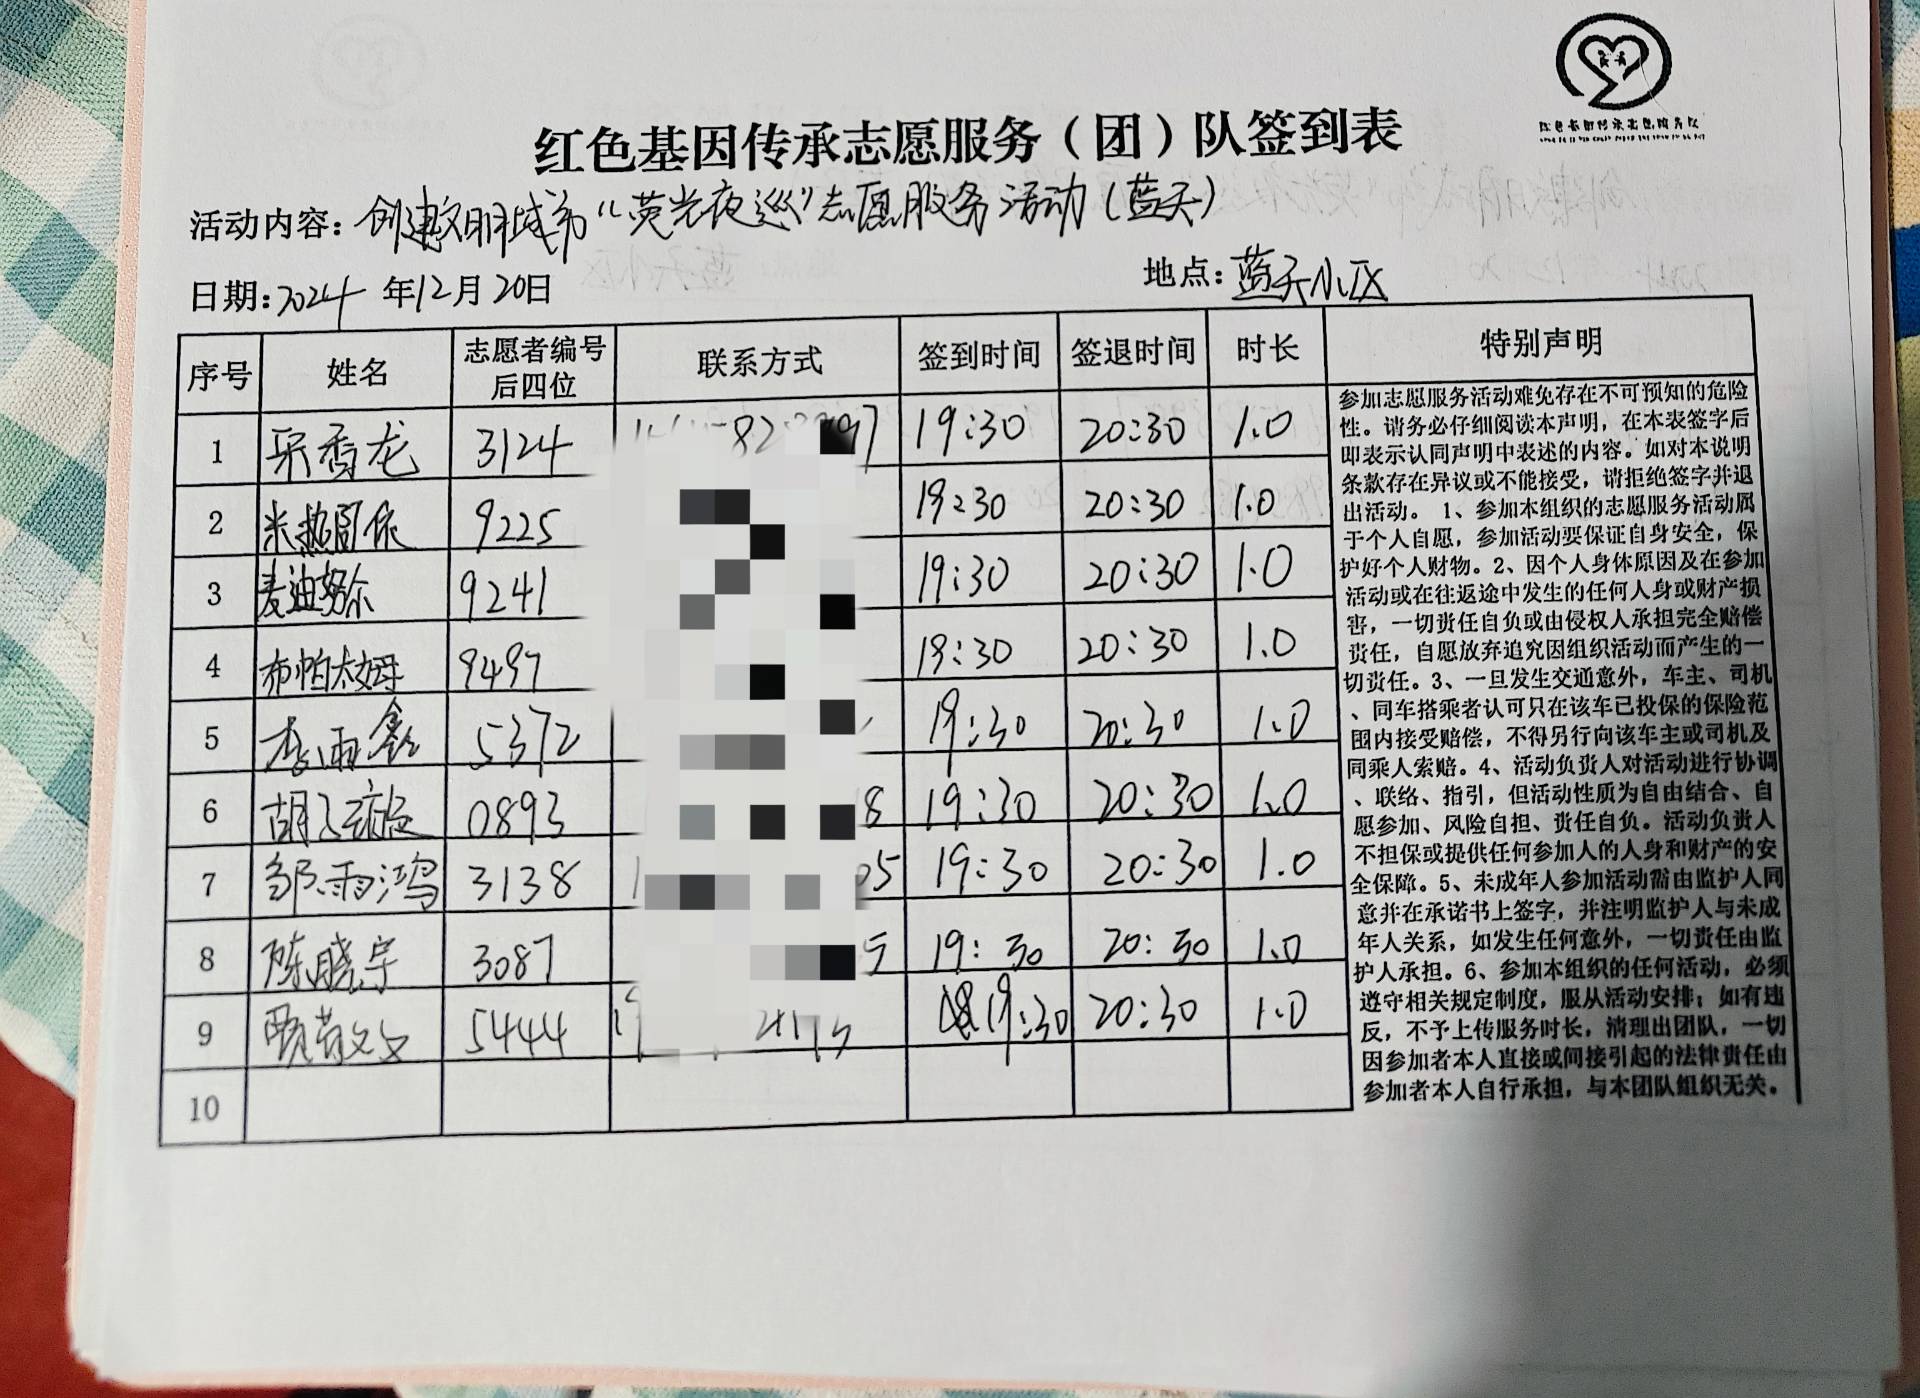 红色基因传承志愿服务（团）队签到表
活动内容：创建文明城市“荧光夜巡”志愿服务活动（蓝天）
日期：2024年12月20日 地点：蓝天小区
序号 姓名 志愿者编号后四位 联系方式 签到时间 签退时间 时长 特别声明
1 香龙 3124 19:30 20:30 1.0
2 米热古依 9225 19:30 20:30 1.0
3 麦迪努尔 9241 19:30 20:30 1.0
4 布帕太姆 9497 19:30 20:30 1.0
5 李雨鑫 5372 19:30 20:30 1.0
6 胡 0893 8 19:30 20:30 1.0
7 邹雨鸿 3138 1 05 19:30 20:30 1.0
8 陈晓宇 3087 5 19:30 20:30 1.0
9 贾苗文 5444 19:30 20:30 1.0
10
参加志愿服务活动难免存在不可预知的危险
性。请务必仔细阅读本声明，在本表签字后
即表示认同声明中表述的内容。如对本说明
条款存在异议或不能接受，请拒绝签字并退
出活动。 1、参加本组织的志愿服务活动属
于个人自愿，参加活动要保证自身安全，保
护好个人财物。2、因个人身体原因及在参加
活动或在往返途中发生的任何人身或财产损
害，一切责任自负或由侵权人承担完全赔偿
责任，自愿放弃追究因组织活动而产生的一
切责任。3、一旦发生交通意外，车主、司机
、同车搭乘者认可只在该车已投保的保险范
围内接受赔偿，不得另行向该车主或司机及
同乘人索赔。4、活动负责人对活动进行协调
、联络、指引，但活动性质为自由结合、自
愿参加、风险自担、责任自负。活动负责人
不担保或提供任何参加人的人身和财产的安
全保障。5、未成年人参加活动需由监护人同
意并在承诺书上签字，并注明监护人与未成
年人关系，如发生任何意外，一切责任由监
护人承担。6、参加本组织的任何活动，必须
遵守相关规定制度，服从活动安排；如有违
反，不予上传服务时长，清理出团队，一切
因参加者本人直接或间接引起的法律责任由
参加者本人自行承担，与本团队组织无关。